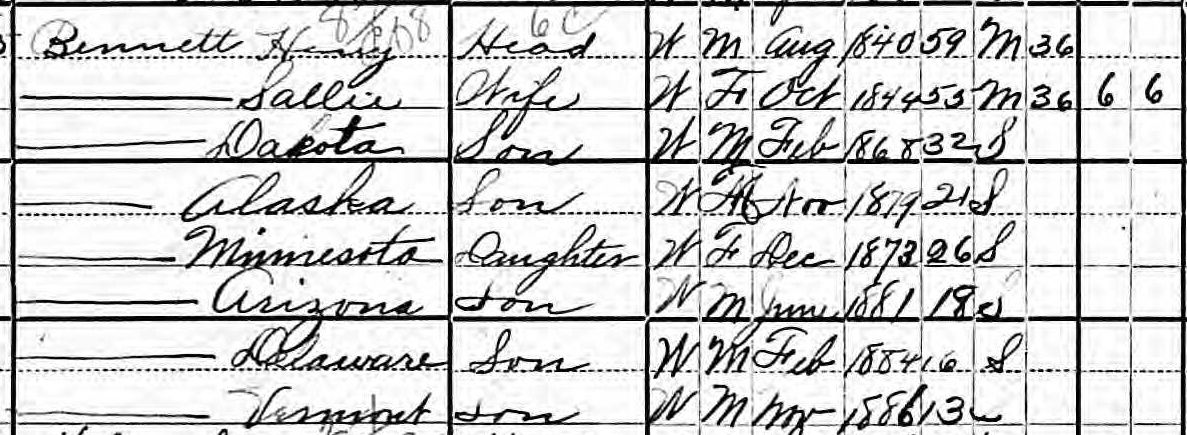 Bennett Henry Head W M Aug 1840 59 M 36
Sallie Wife W F Oct 1844 55 M 36 6 6
Dakota Son W M Feb 1868 32 S
Alaska Son W M Nov 1879 21 S
Minnesota Daughter W F Dec 1873 26 S
Arizona Son W M June 1881 18 S
Delaware Son W M Feb 1884 16 S
Vermont Son W M Nov 1886 13